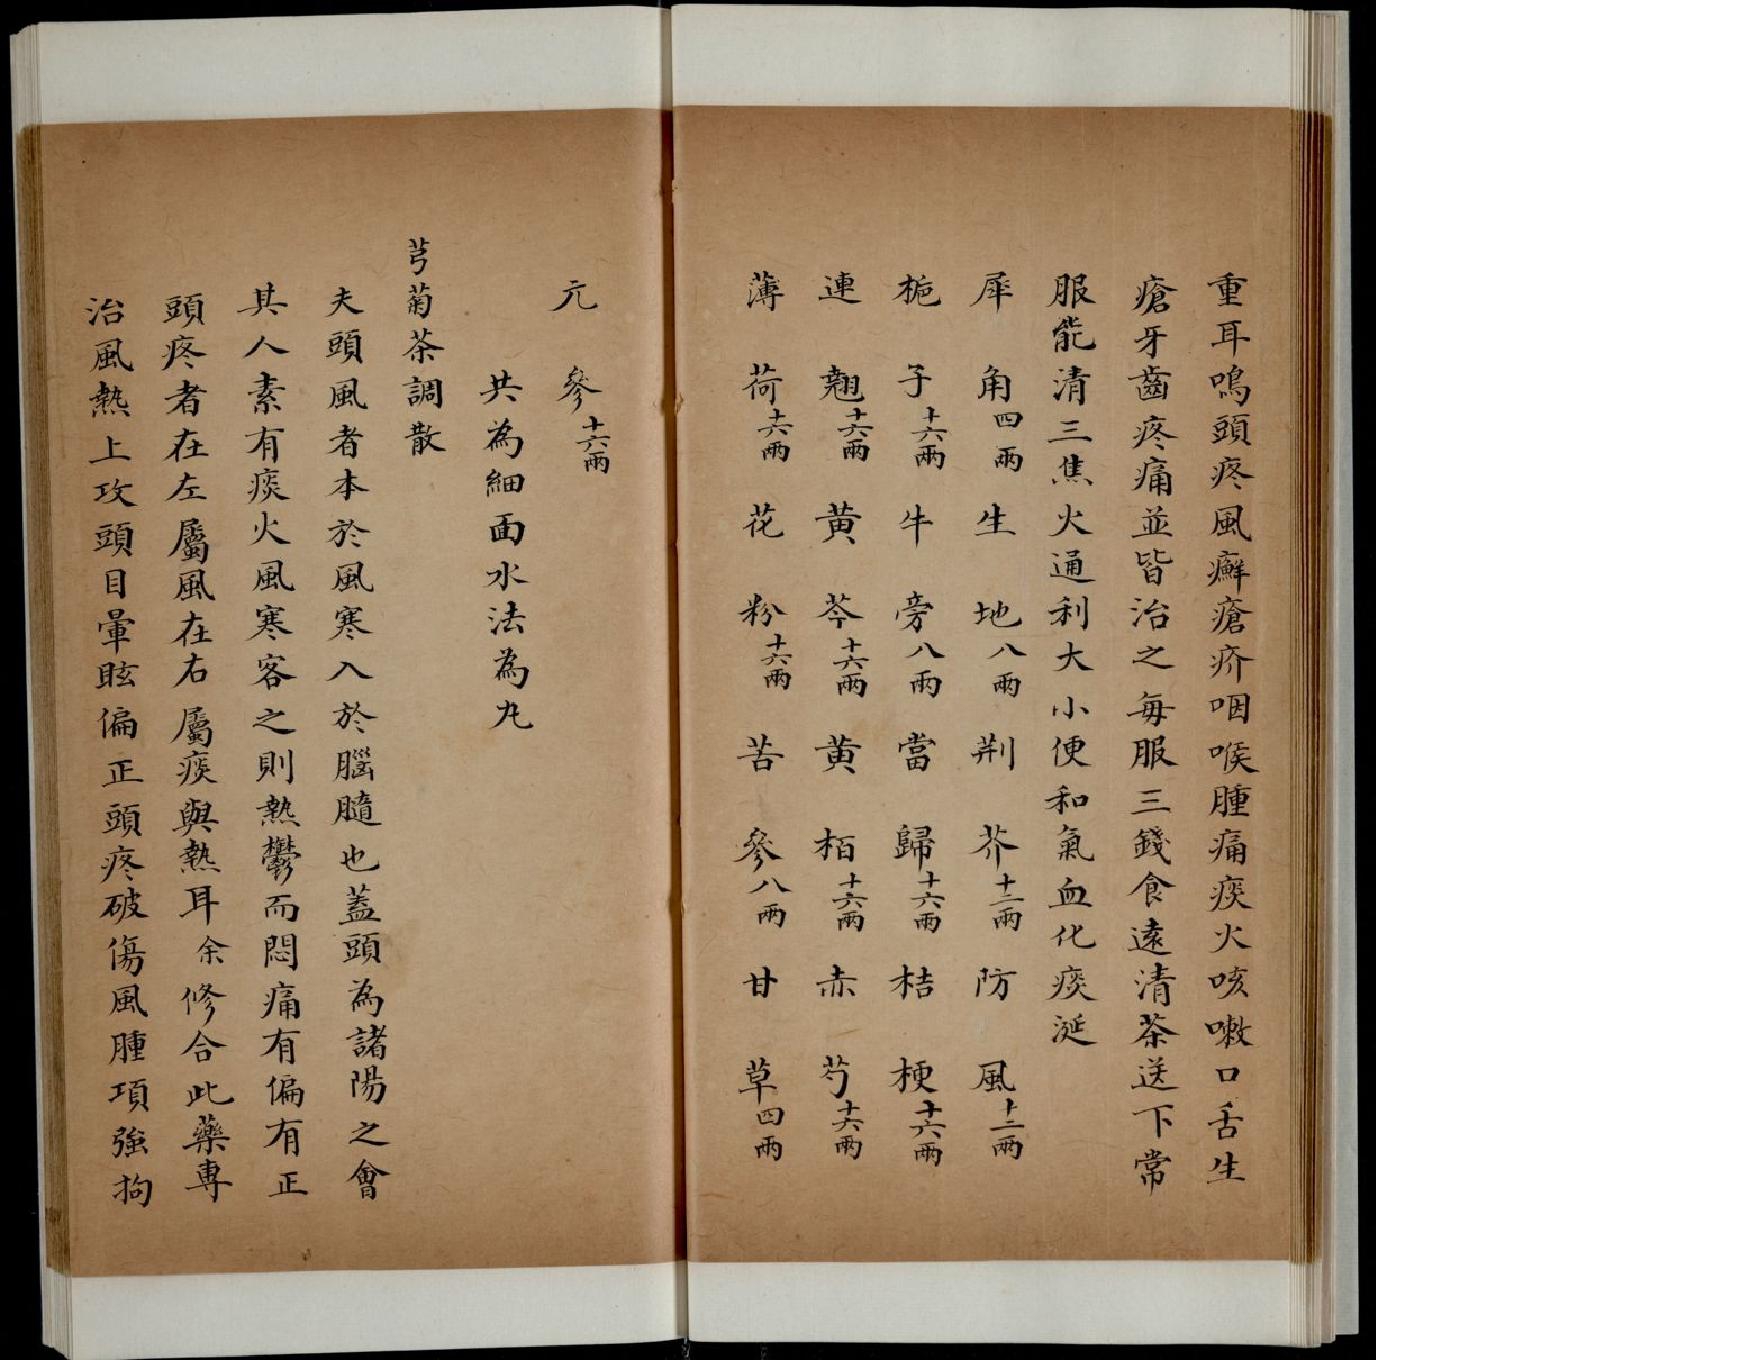 重耳鳴頭疼風癬瘡疥咽喉腫痛痰火咳嗽口舌生
瘡牙齒疼痛並皆治之每服三錢食遠清茶送下常
服能清三焦火通利大小便和氣血化痰涎
犀角四兩生地八兩荆芥十二兩防風十二兩
梔子十六兩牛旁八兩當歸十六兩桔梗十六兩
連翹十六兩黃芩十六兩黃栢十六兩赤芍十六兩
薄荷十六兩花粉十六兩苦參八兩甘草四兩
元參十六兩
共為細面水法為丸
芎菊茶調散
夫頭風者本於風寒入於腦髓也蓋頭為諸陽之會
其人素有痰火風寒客之則熱鬱而悶痛有偏有正
頭疼者在左屬風在右屬痰與熱耳余修合此藥專
治風熱上攻頭目暈眩偏正頭疼破傷風腫項強拘